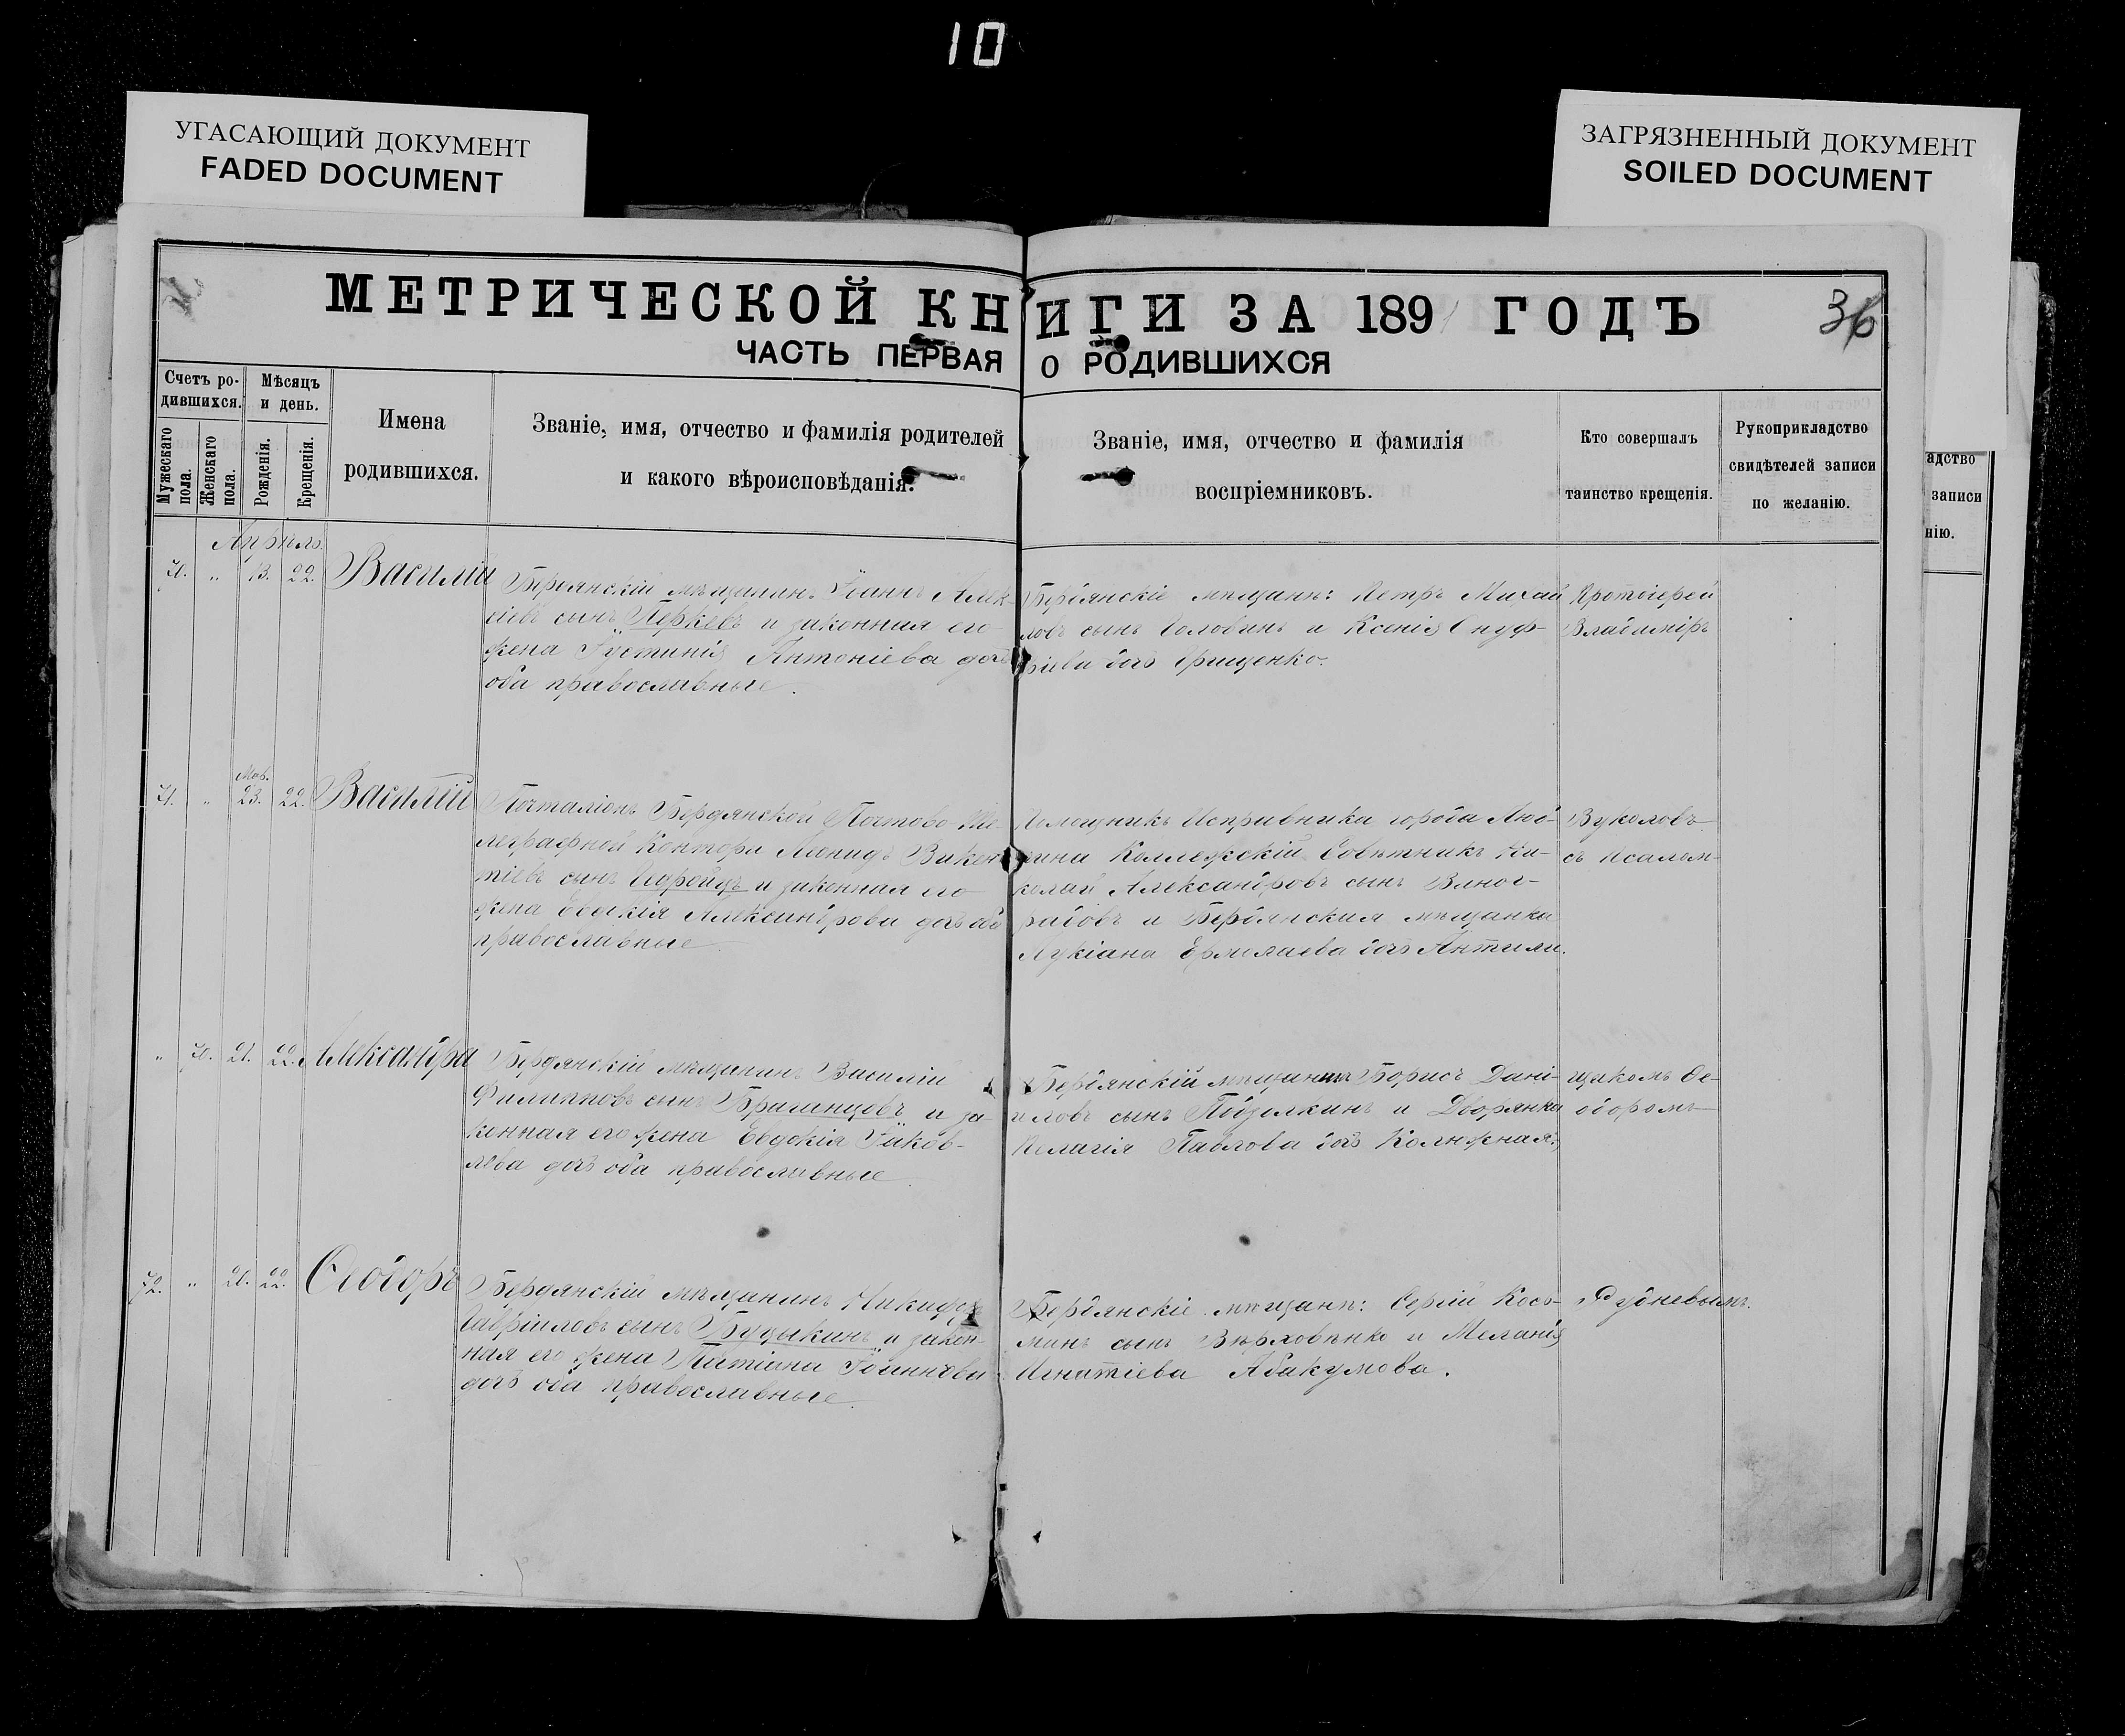 10
УГАСАЮЩИЙ ДОКУМЕНТ
FADED DOCUMENT
ЗАГРЯЗНЕННЫЙ ДОКУМЕНТ
SOILED DOCUMENT
МЕТРИЧЕСКОЙ КНИГИ ЗА 1891 ГОДЪ
36
ЧАСТЬ ПЕРВАЯ О РОДИВШИХСЯ
Счетъ ро-
дившихся.
Мужескаго
пола.
Женскаго
пола.
Мѣсяцъ
и день.
Рожденія.
Крещенія.
Имена
родившихся.
Званіе, имя, отчество и фамилія родителей
и какого вѣроисповѣданія.
Званіе, имя, отчество и фамилія
воспріемниковъ.
Кто совершалъ
таинство крещенія.
Рукоприкладство
свидѣтелей записи
по желанію.
адство
записи
нію.
Апрѣль
" 13. 22. Василій
Бердянскій мѣщанинъ Іоаннъ Алек-
сіевъ сынъ и законная его
жена Іустинія Антоніева дочь
оба православные.
Бердянскіе мѣщане: Петръ Михаи
ловъ сынъ Головинъ и Ксенія Онуф-
ріева дочь Грищенко.
Протоіерей
Владиміръ
71. " 23. 22. Василій
Почталіонъ Бердянской Почтово-Те-
леграфной Конторы Леонидъ Викен
тіевъ сынъ и законная его
жена Евдокія Александрова дочь оба
православные.
Помощникъ Исправника города
Коллежскій Совѣтникъ Ни-
колай Александровъ сынъ Виног-
радовъ и Бердянская мѣщанка
Лукіана Ермолаева дочь
Вуколовъ
съ псалом-
" 70. 21. 22. Александра
Бердянскій мѣщанинъ Василій
Филипповъ сынъ Браганцовъ и за-
конная его жена Евдокія Іаков-
лева дочь оба православные.
Бердянскій мѣщанинъ Борисъ Дані-
иловъ сынъ и Дворянка
Пелагія Павлова дочь
щикомъ Ѳе-
одоромъ
72. " 21. 22. Ѳеодоръ
Бердянскій мѣщанинъ Никифоръ
Гавріиловъ сынъ и закон-
ная его жена Татіана Іоаннова
дочь оба православные.
Бердянскіе мѣщане: Сергій Кось-
минъ сынъ и Меланія
Игнатіева Абакумова.
Рудневымъ.